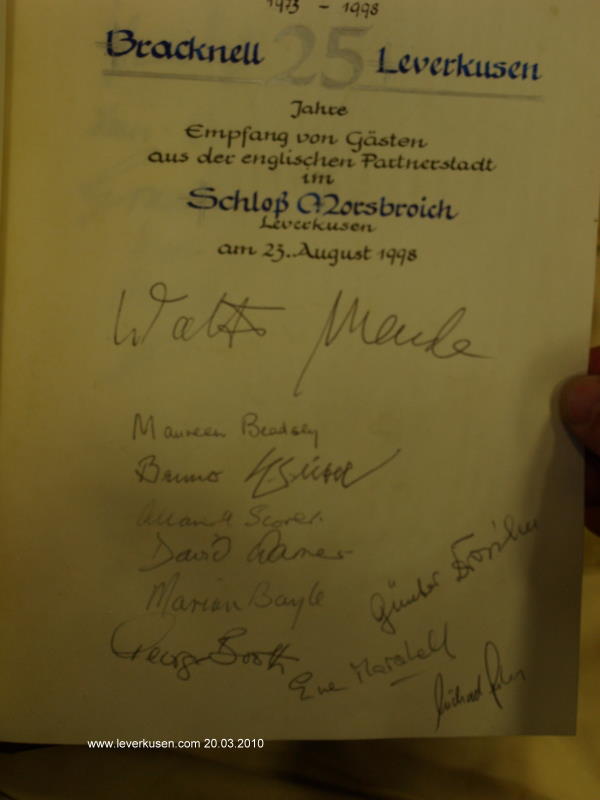 1973 - 1998
Bracknell 25 Leverkusen
Jahre
Empfang von Gästen
aus der englischen Partnerstadt
im
Schloß Morsbroich
Leverkusen
am 23. August 1998
Walter Mende
Maureen Beadsley
Bruno
Allan H Scorer.
David
Marion Bayle
George Booth
Günter
Eve Marshall
Michael
www.leverkusen.com 20.03.2010